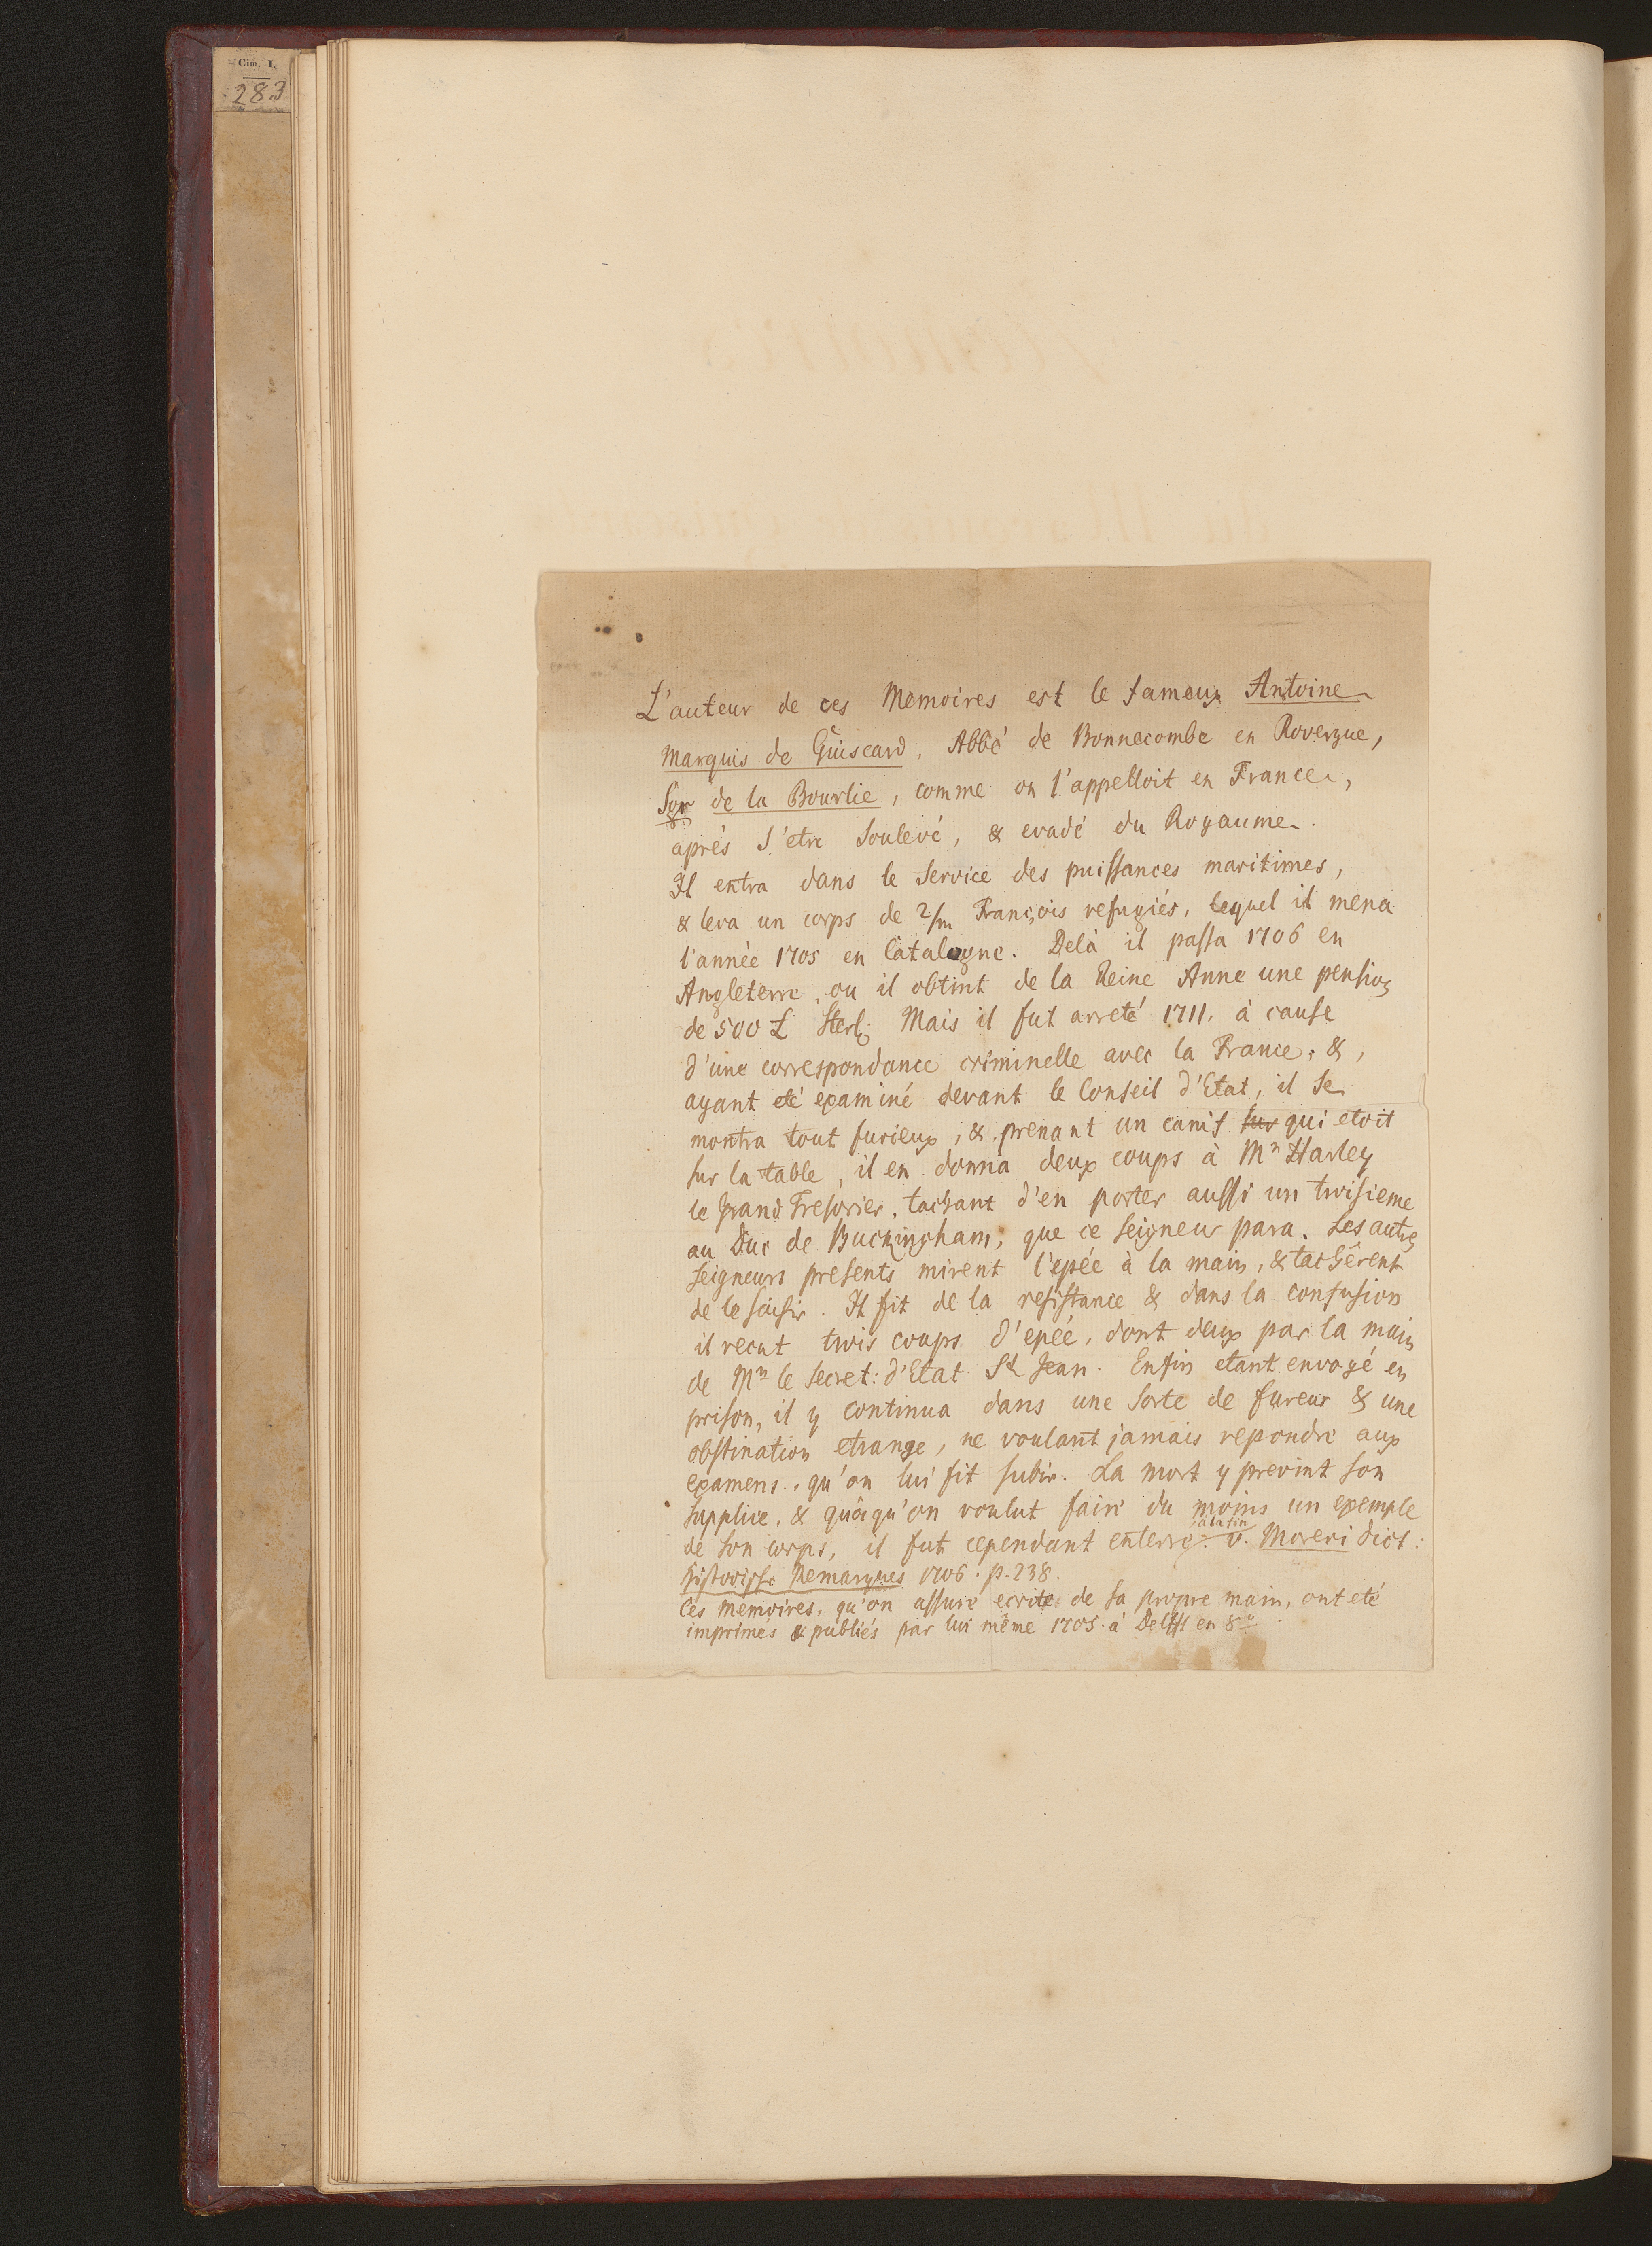 Cim. I.
283
L'auteur de ces Memoires est le fameux Antoine
Marquis de Guiscard, Abbé de Bonnecombe en Rovergue,
Sgr de la Bourlie, comme on l'appelloit en France,
après s'etre soulevé, & evadé du Royaume.
Il entra dans le service des puissances maritimes,
& leva un corps de 2/m François refugiés, lequel il mena
l'année 1705 en Catalogne. Delà il passa 1706 en
Angleterre, ou il obtint de la Reine Anne une pension
de 500 £ Sterl: Mais il fut arreté 1711. à cause
d'une correspondance criminelle avec la France; &,
ayant eté examiné devant le Conseil d'Etat, il se
montra tout furieux, & prenant un canif sur qui etoit
sur la table, il en donna deux coups à Mr Harley
le grand Tresorier, tachant d'en porter aussi un troisieme
au Duc de Buckingham, que ce seigneur para. Les autres
seigneurs presents mirent l'epée à la main, & tachèrent
de le saisir. Il fit de la resistance & dans la confusion
il recut trois coups d'epée, dont deux par la main
de Mr le Secret: d'Etat St Jean. Enfin etant envoyé en
prison, il y continua dans une sorte de fureur & une
obstination etrange, ne voulant jamais repondre aux
examens, qu'on lui fit subir. La mort y prevint son
supplice, & quoiqu'on voulut faire du moins un exemple
de son corps, il fut cependant enterré. v. Moreri dict:
Historische Remarques 1706. p. 238.
Ces memoires, qu'on assure ecrite de sa propre main, ont eté
imprimés & publiés par lui même 1705. à Delfft en 8°